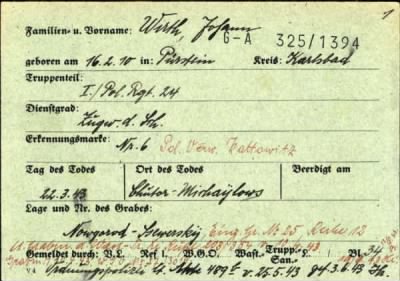 1
Familien- u. Vorname: Wirth, Johann
G-A 325/1394
geboren am 16.2.10 in: Pürstein Kreis: Karlsbad
Truppenteil:
I./Pol. Rgt. 24
Dienstgrad:
Zugw. d. Sch.
Erkennungsmarke: Nr. 6 Pol. Verw. Kattowitz
Tag des Todes Ort des Todes Beerdigt am
22.3.43 Chutor-Michaylows
Lage und Nr. des Grabes:
Nowgorod-Ssewerskij Einz. Gr. Nr. 25 Reihe 12
Gemeldet durch: V.L. Ref. I. W.G.O. Wast.- Trupp.- San.- L. Bl. 34
Ordnungspolizei v. 25.5.43